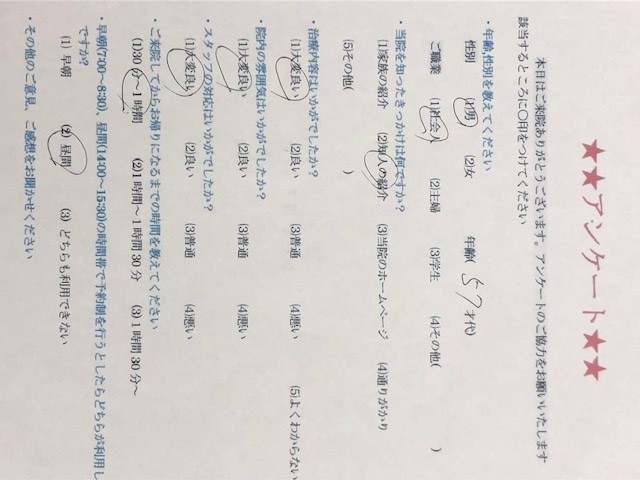 ★★アンケート★★
本日はご来院ありがとうございます。アンケートのご協力をお願いいたします
該当するところに○印をつけてください
・年齢,性別を教えてください
性別 (1)男 (2)女 年齢( 57 才代)
ご職業 (1)社会人 (2)主婦 (3)学生 (4)その他( )
・当院を知ったきっかけは何ですか?
(1)家族の紹介 (2)知人の紹介 (3)当院のホームページ (4)通りがかり
(5)その他( )
・治療内容はいかがでしたか?
(1)大変良い (2)良い (3)普通 (4)悪い (5)よくわからない
・院内の雰囲気はいかがでしたか?
(1)大変良い (2)良い (3)普通 (4)悪い
・スタッフの対応はいかがでしたか?
(1)大変良い (2)良い (3)普通 (4)悪い
・ご来院してからお帰りになるまでの時間を教えてください
(1)30分~1時間 (2)1時間~1時間30分 (3)1時間30分~
・早朝(7:00~8:30)、昼間(14:00~15:30)の時間帯で予約制を行うとしたらどちらが利用し
ですか?
(1) 早朝 (2) 昼間 (3) どちらも利用できない
・その他のご意見、ご感想をお聞かせください